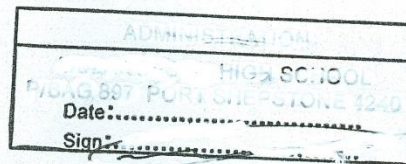 ADMINISTRATION
HIGH SCHOOL
P/BAG 897 PORT SHEPSTONE 4240
Date:
Sign: